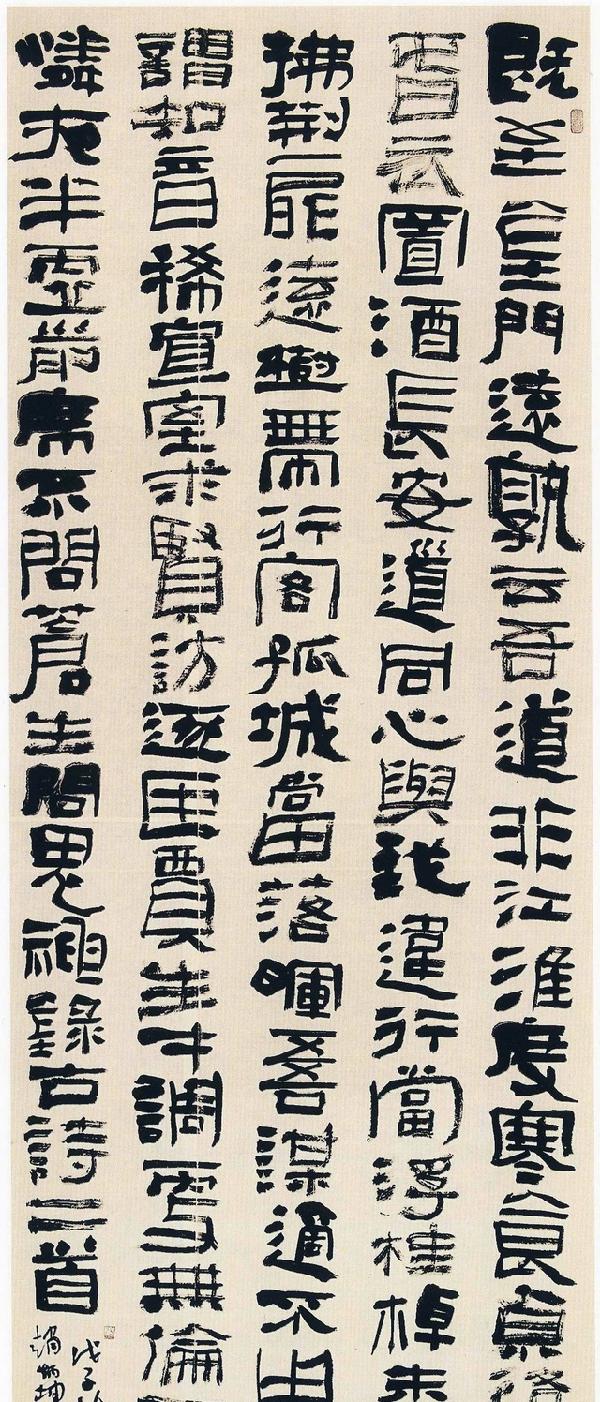 既至金門遠孰云吾道非江淮度寒食京洛
春衣置酒長安道同心與我違行當浮桂棹未
拂荊扉遠樹帶行客孤城當落暉吾謀適不用
謂知音稀宣室求賢訪逐臣賈生才調更無倫
憐夜半虛前席不問蒼生問鬼神錄古詩二首
戊子